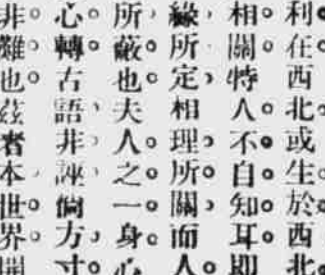 利。在西北。或生。於。西。北
相。關。特人。不。自。知。耳。即
緣，所定，相理，所。關，而人。
所，蔽。也。夫人。之。一。身。心
心。轉。古語，非，誣，倘方，寸。
非。難。也。茲者本，世。界。開